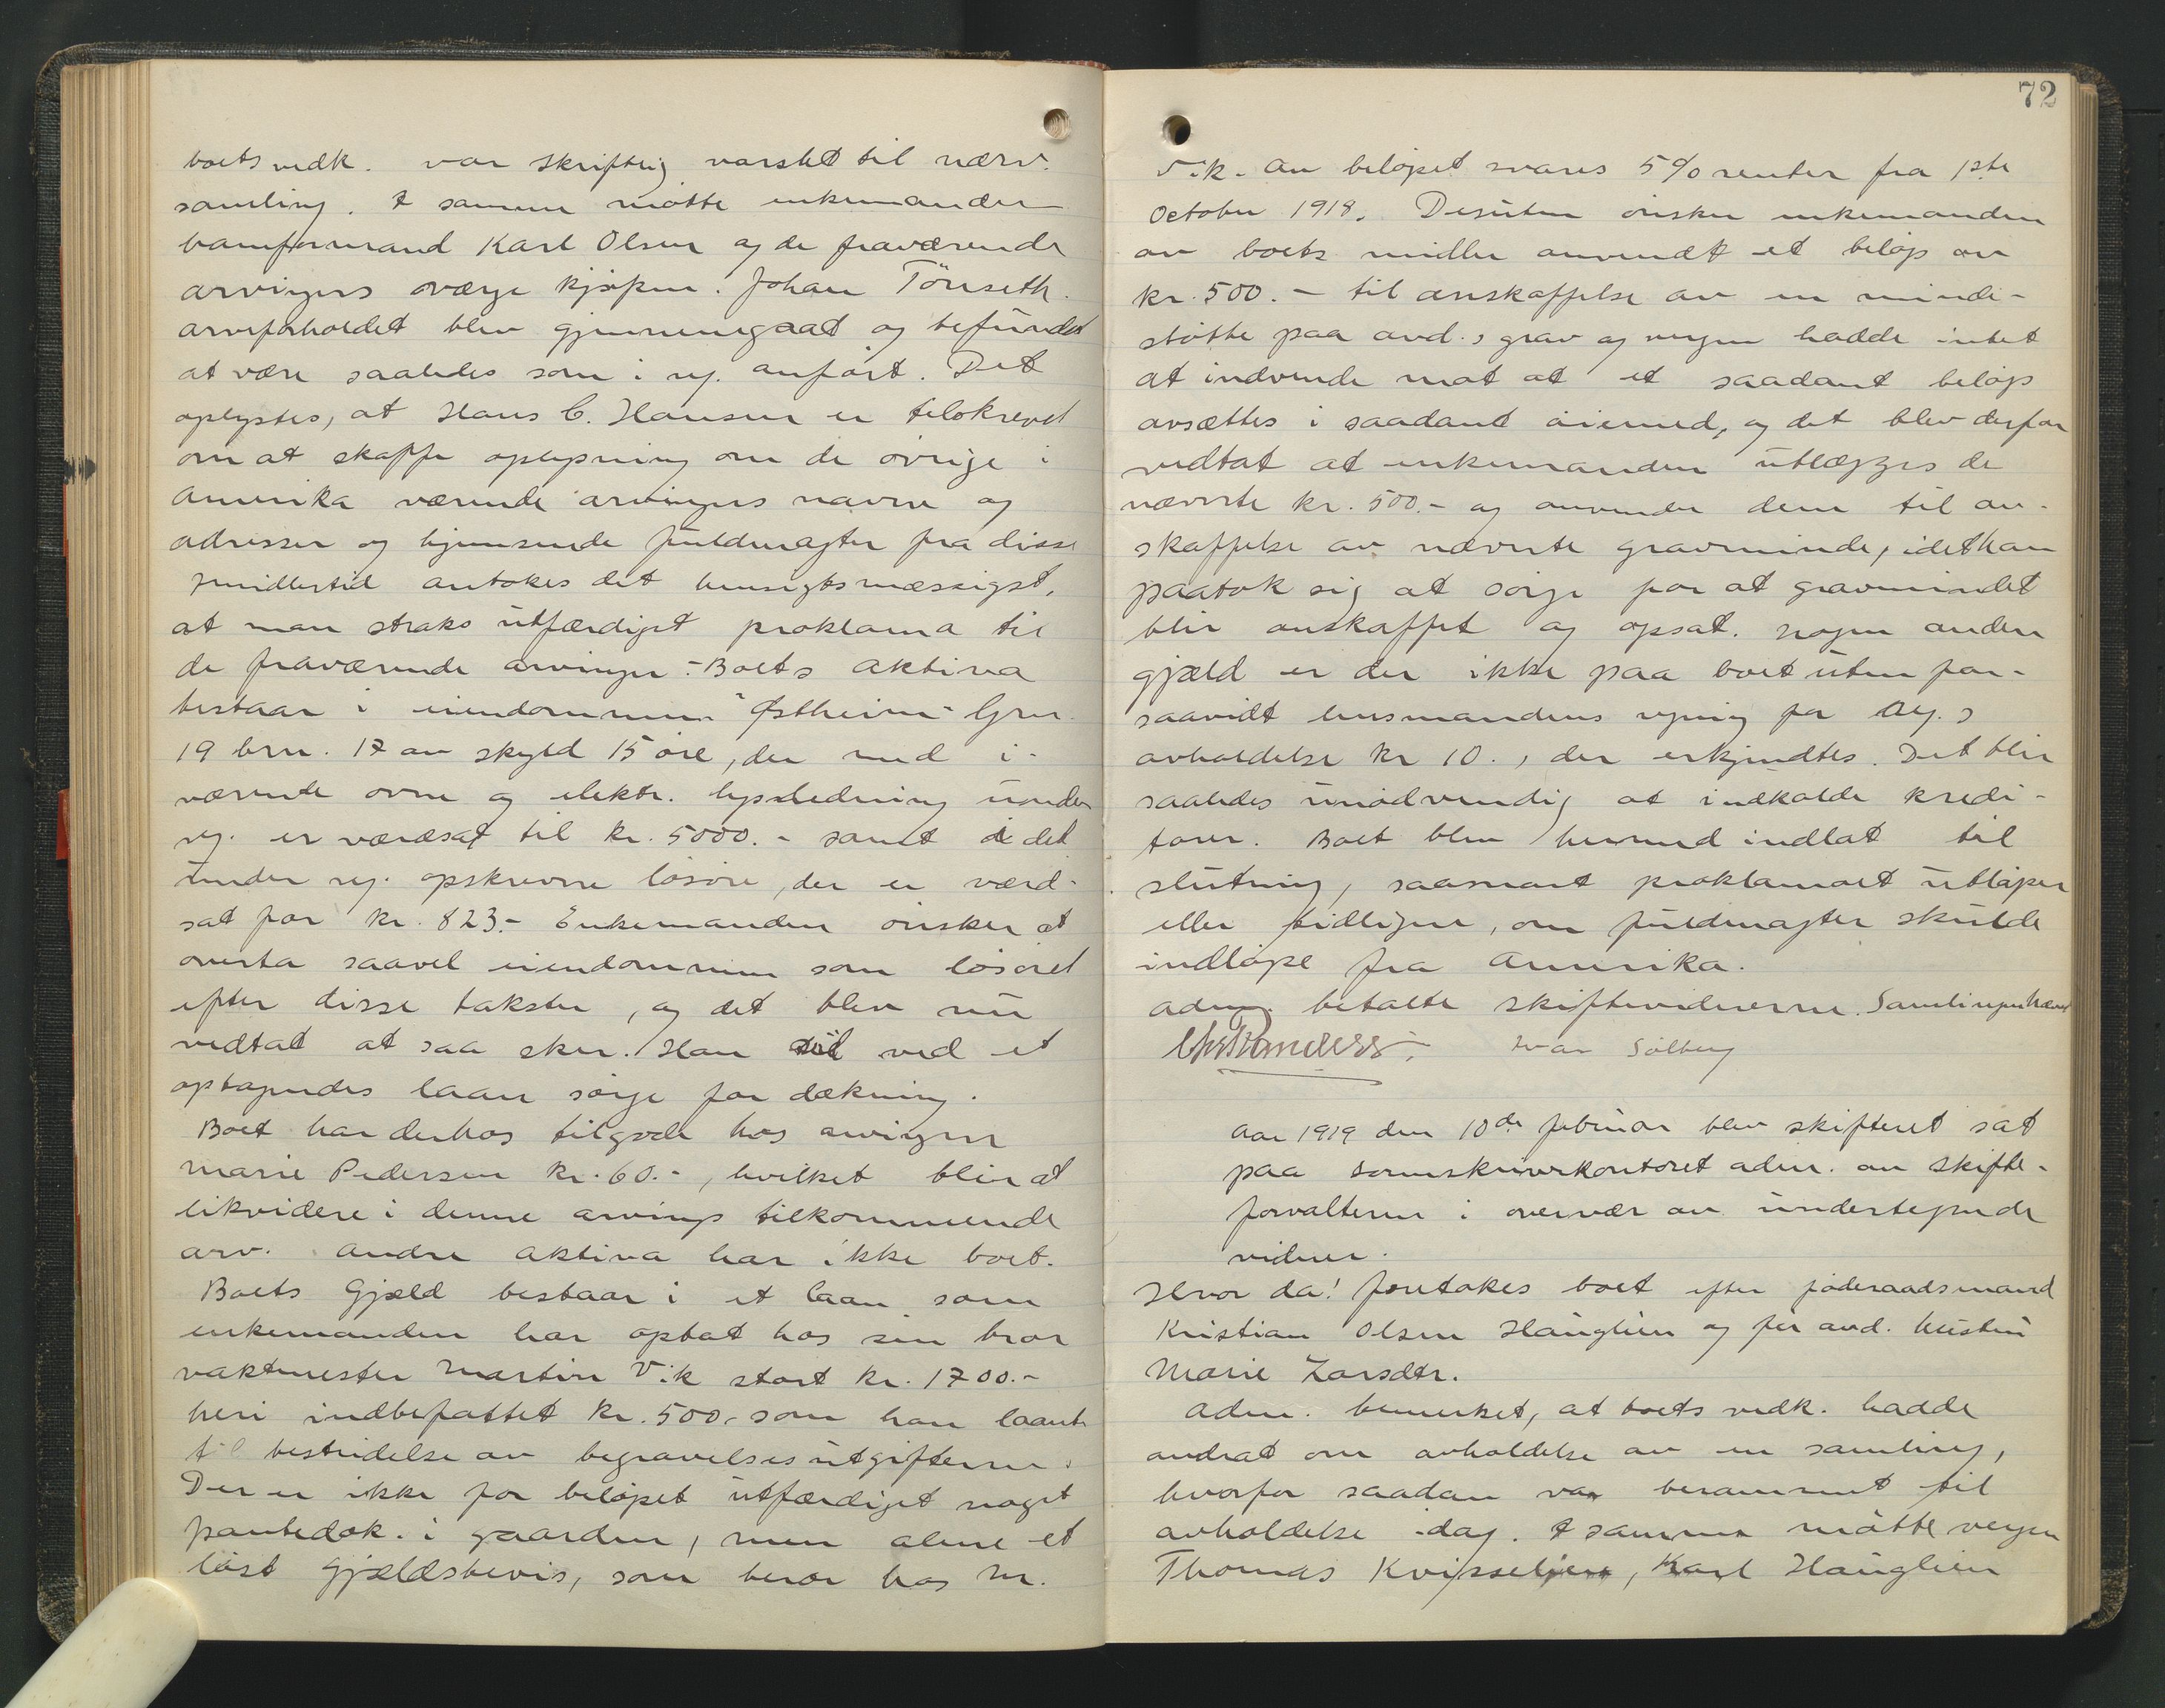 boets vedk. var skriftlig varslet til nærv.
samling. I samme møtte enkemanden
banformand Karl Olsen og de fraværende
arvingers verge kjøpm. Johan Tönseth.
arveforholdet blev gjennemgaat og befundet
at være saaledes som i reg. anført. Det
oplystes, at Hans C. Hansen er tilskrevet
om at skaffe oplysning om de øvrige i
Amerika værende arvingers navne og
adresser og hjemsende fuldmagter fra disse
Imidlertid antokes det hensigtsmæssigst,
at man straks utfærdiget proklama til
de fraværende arvinger. - Boets aktiva
bestaar i eiendommen "Østheim" Grn.
19 brn. 17 av skyld 15 øre, der med i-
værende ovne og elektr. lysledning under
reg. er værdsat til kr. 5000.- samt i det
under reg. opskrevne løsøre, der er værd-
sat for kr. 823.- Enkemanden ønsker at
overta saavel eiendommen som løsøret
efter disse takster, og det blev nu
vedtat at saa sker. Han vil ved et
optagendes laan sørge for dækning.
Boet har derhos tilgode hos arvingen
Marie Pedersen kr. 60.-, hvilket blir at
likvidere i denne arvings tilkommende
arv. Andre aktiva har ikke boet.
Boets Gjæld bestaar i et laan som
enkemanden har optat hos sin bror
vaktmester Martin Vik stort kr. 1700.-
heri indbefattet kr. 500,- som han laante
til bestridelse av begravelsesutgifterne.
Der er ikke for beløpet utfærdiget noget
pantedok. i gaarden, men alene et
løst gjældsbevis, som beror hos M.
72
Vik. Av beløpet svares 5 % renter fra 1ste
October 1918. Desuten ønsker enkemanden
av boets midler anvendt et beløp av
kr. 500.- til anskaffelse av en minde-
støtte paa avd.s grav og vergen hadde intet
at indvende mot at et saadant beløp
avsættes i saadant øiemed, og det blev derfor
vedtat at enkemanden utlægges de
nævnte kr. 500.- og anvender dem til an-
skaffelse av nævnte gravminde, idet han
paatok sig at sørge for at gravmindet
blir anskaffet og opsat. Nogen anden
gjæld er der ikke paa boet uten for-
saavidt lensmandens regning for reg.s
avholdelse kr 10., der erkjendtes. Det blir
saaledes unødvendig at indkalde kredi-
torer. Boet blev hermed indlat til
slutning, saasnart proklamaet utløper
eller tidligere, om fuldmagter skulde
indløpe fra Amerika.
adm. betalte skiftevidnerne. Samlingen hævet
Ivar Solberg
Aar 1919 den 10de februar blev skifteret sat
paa sorenskriverkontoret adm. av skifte-
forvalteren i overvær av undertegnede
vidner.
Hvor da! foretokes boet efter føderaadsmand
Kristian Olsen Hauglien og før avd. hustru
Marie Larsdtr.
Adm. bemerket, at boets vedk. hadde
andrat om avholdelse av en samling,
hvorfor saadan var berammet til
avholdelse idag. I samme møtte vergen
Thomas Kvisselien, Karl Hauglien